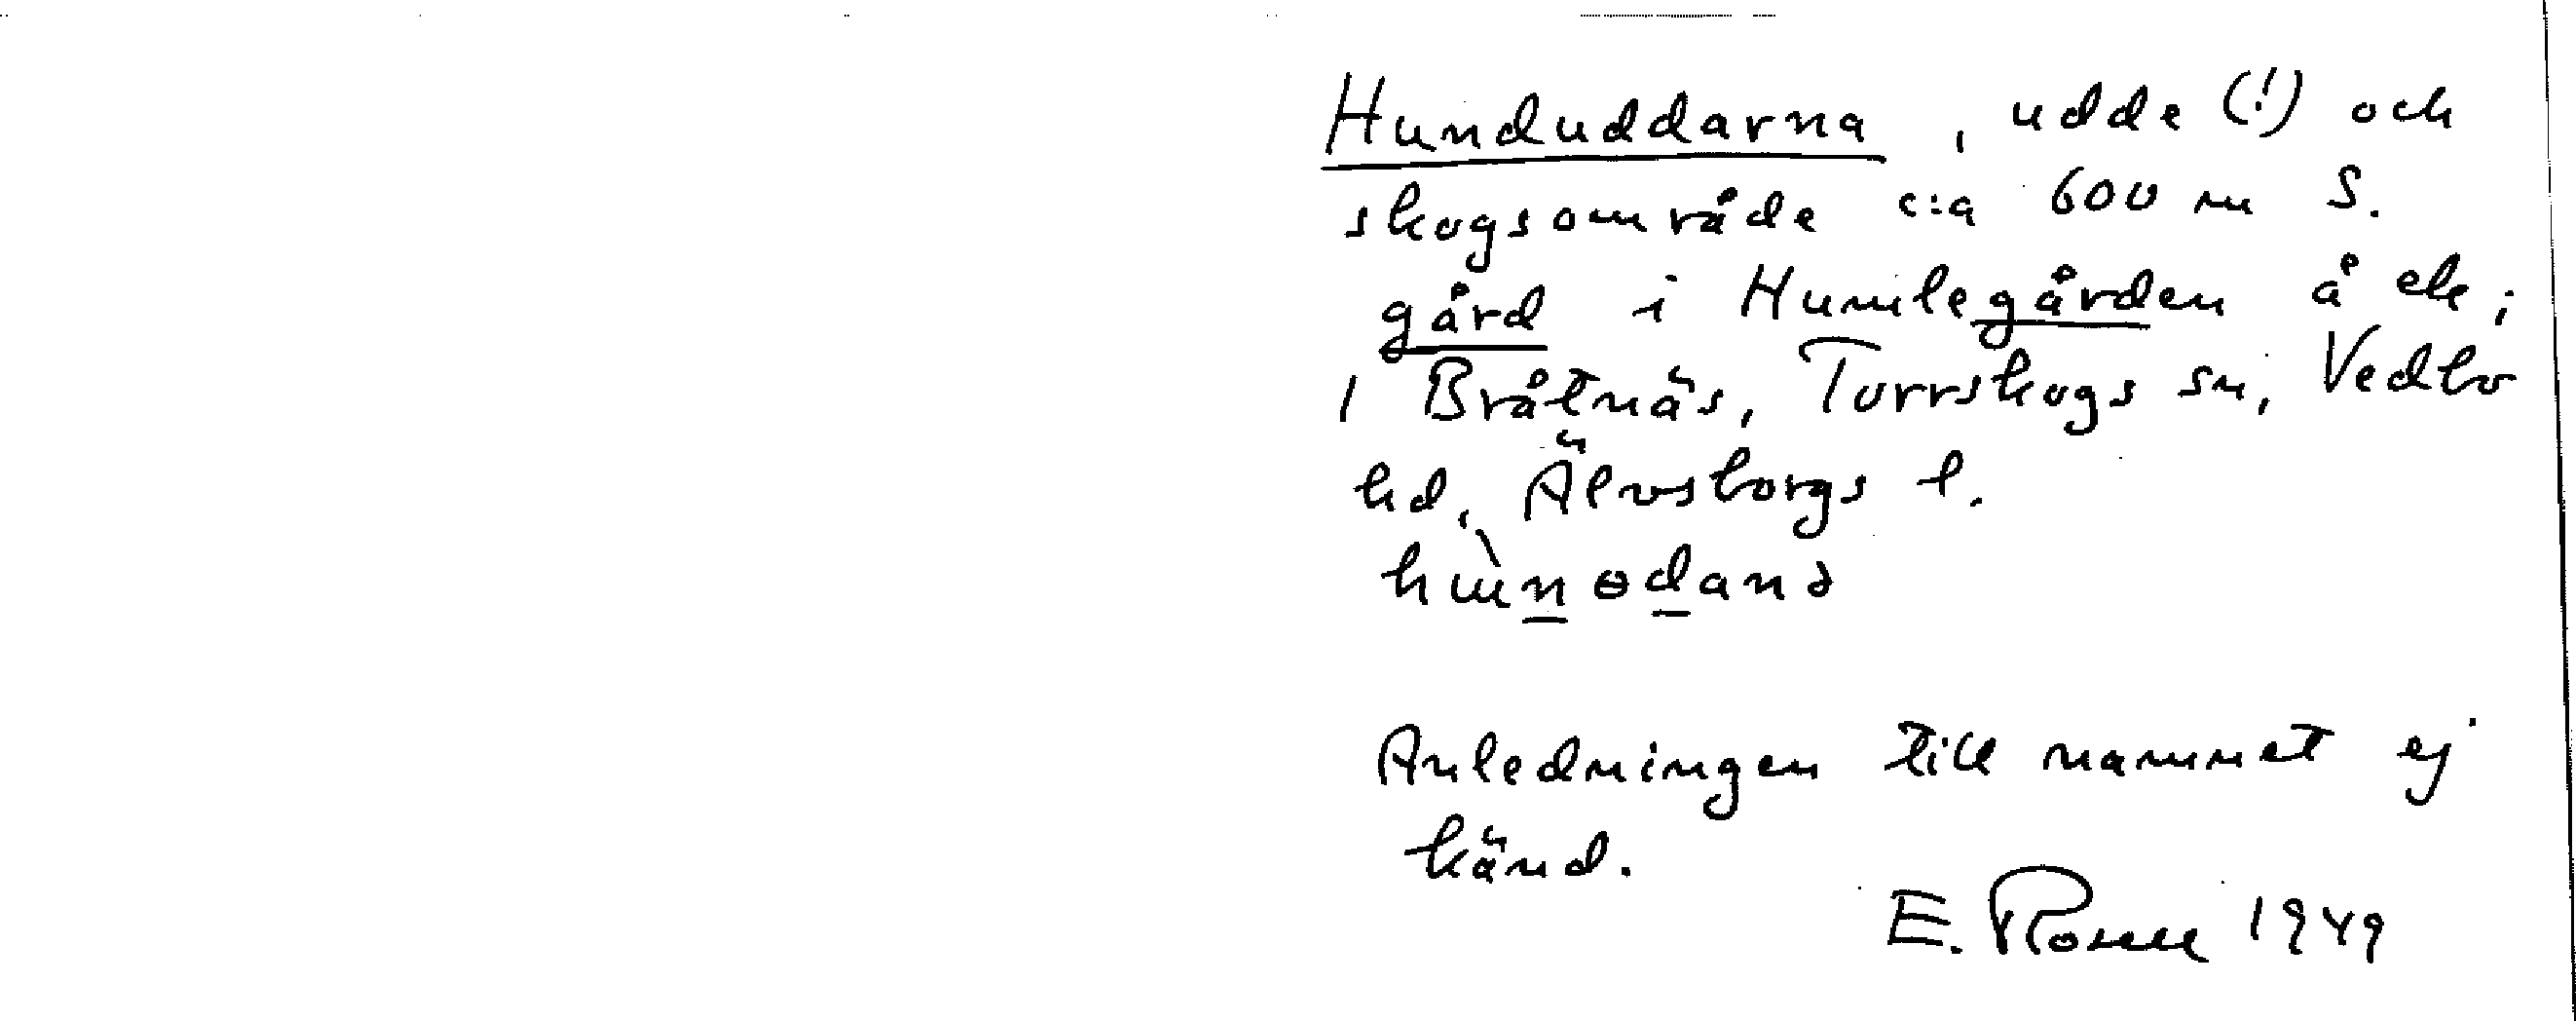 Hunduddarna, udde (!) och
skogsområde c:a 600 m S.
gård i Humlegården å ek;
1 Bråtnäs, Torrskogs sn, Vedbo
hd, Älvsborgs l.
Anledningen till namnet ej
känd.
E. 1949